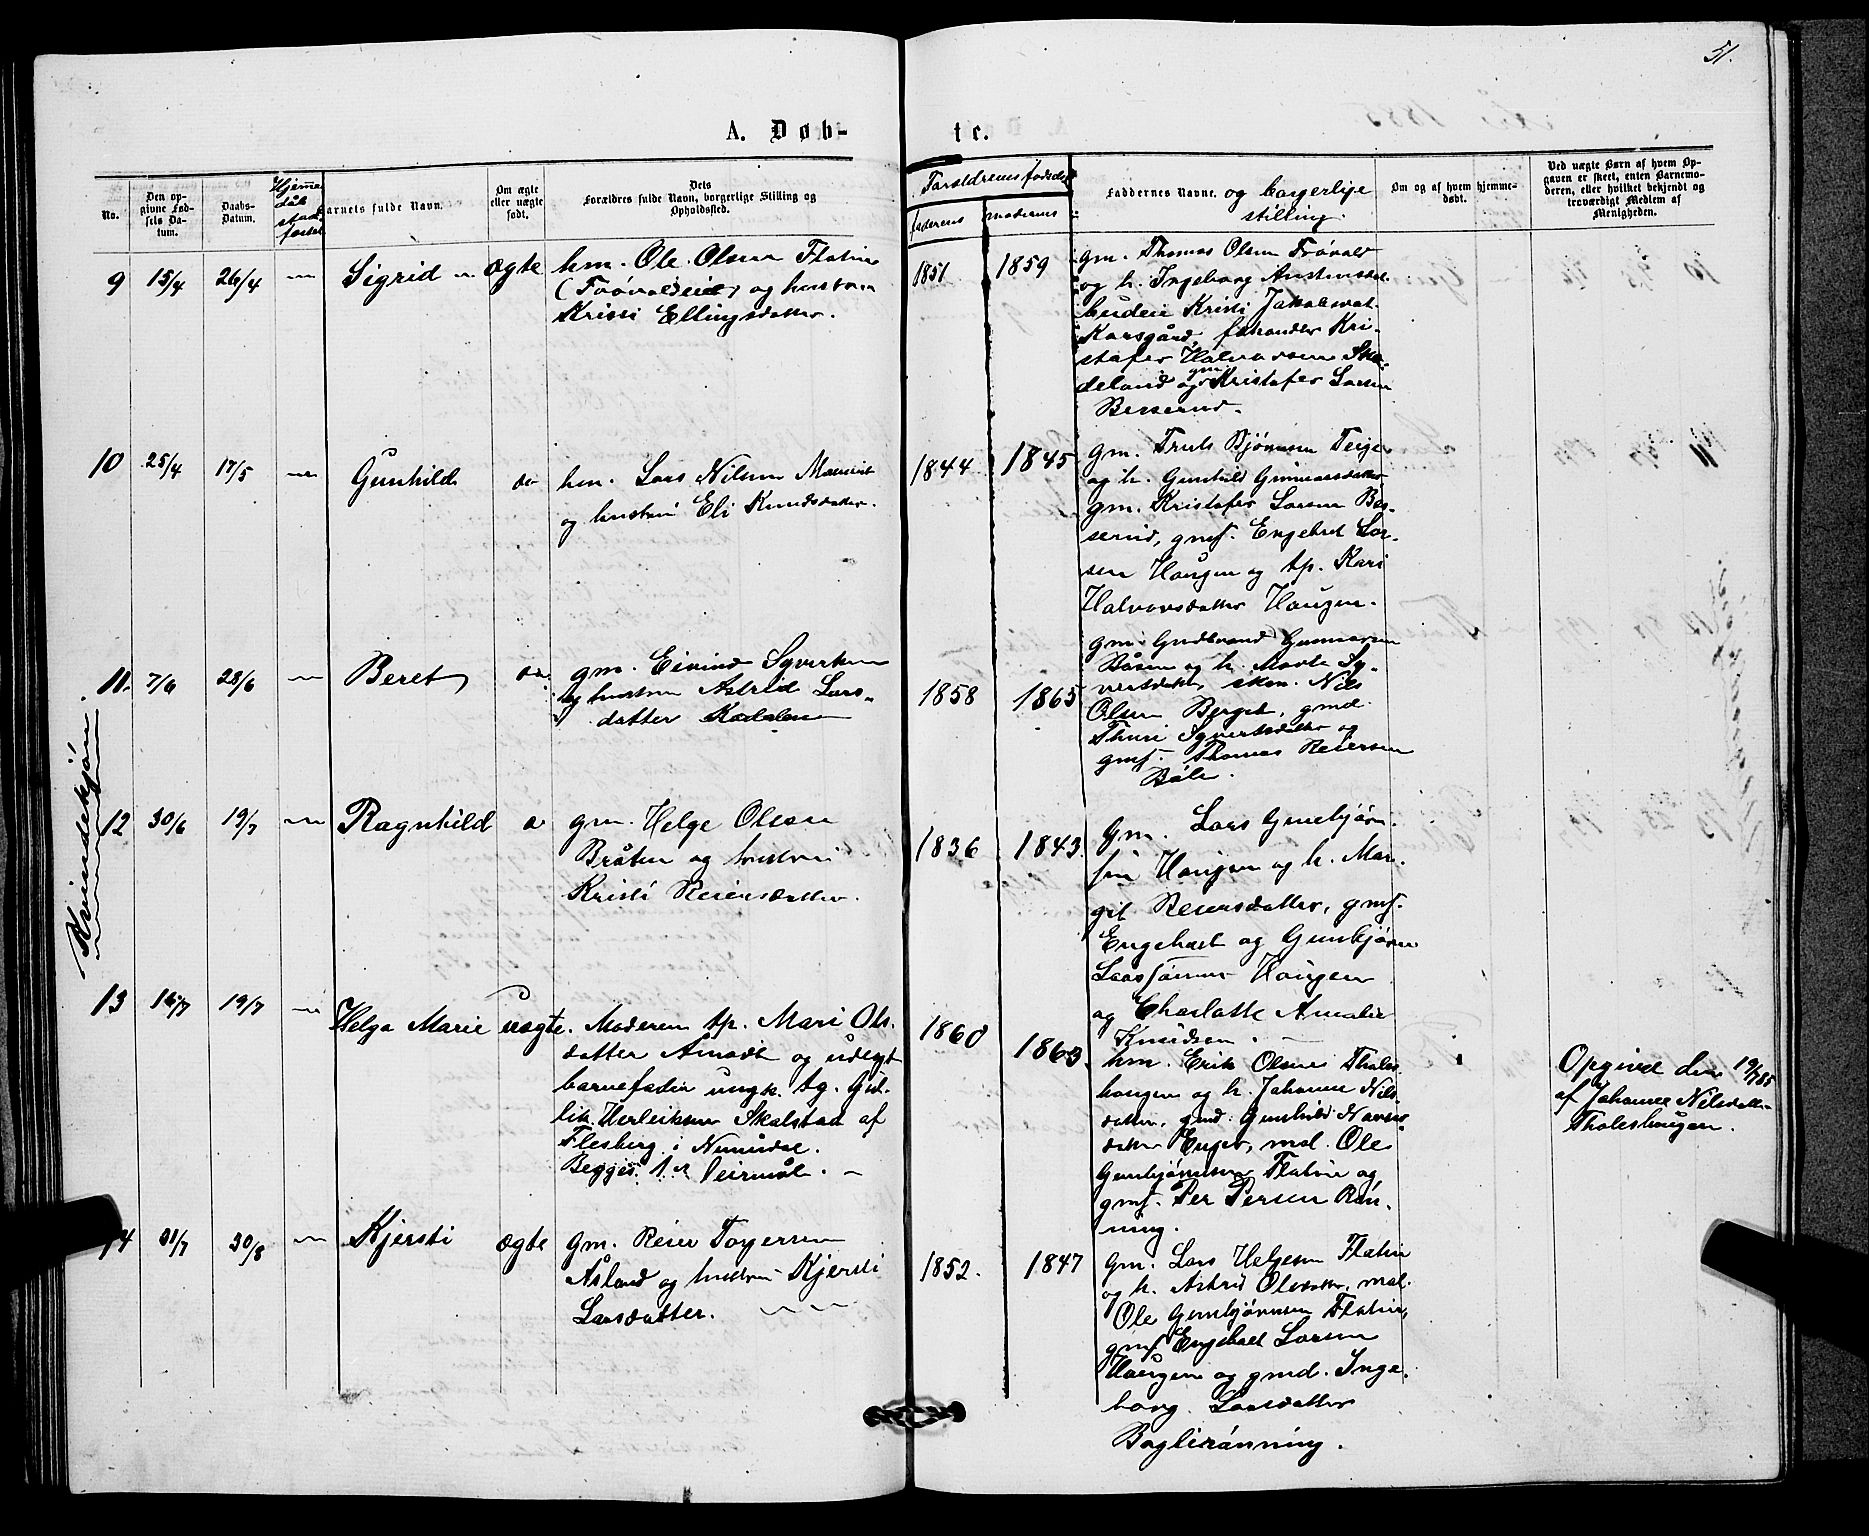 51.
A. Døb-
te.
No.
Den op-
givne Fød-
sels Da-
tum.
Daabs-
Datum.
Hjemme
dåb
stad-
fæstet
Barnets fulde Navn.
Om ægte
eller uægte
født.
Dets
Forældres fulde Navn, borgerlige Stilling og
Opholdssted.
Forældrenes fødselsår
faderens
moderens
Faddernes Navne. og borgerlige
stilling.
Om og af hvem hjemme-
døbt.
Ved uægte Børn af hvem Op-
gaven er skeet, enten Barnemo-
deren, eller hvilket bekjendt og
troværdigt Medlem af
Menigheden.
Kvindekjøn.
9 15/4 26/4 — Sigrid ægte
hm. Ole Olsen Flatin
og hustru
Kristi Ellingsdatter.
1851 1859
gm. Thomas Olsen
og h. Ingeborg
budeie Kristi Jakobsdat.
Karsgård, Kri-
stofer Halvorsen Ska-
deland og gm. Kristofer Larsen
Beserud.
10 25/4 17/5 — Gunhild do
hm. Lars Nilsen
og hustru Eli Knudsdatter.
1844 1845
gm. Truls Bjørnsen Teige
og h. Gunhild Gunnarsdatter
gm. Kristofer Larsen Bes-
serud, gmf. Engebret Lar-
sen Haugen og tp. Kari
Halvorsdatter Haugen.
11. 7/6 28/6 — Beret do.
gm. Eivind Syvertsen
og hustru Astrid Lars-
datter Kodalen
1858 1865
gm. Gudbrand Gunnarsen
Båsen og h. Marte Sy-
vertsdatter, Nils
Olsen Berget, gmd.
Thuri Syvertsdatter og
gmf. Thomas Reiersen
Båle.
12 30/6 19/7 — Ragnhild do
gm. Helge Olsen
Bråten og hustru
Kristi Reiersdatter.
1836 1843.
gm. Lars Gunbjørn-
sen Haugen og h. Mar-
git Reiersdatter, gmf.
Engebret og Gunbjørn
Larssønner Haugen
og Charlotte Amalie
Knudsen.
13 16/7 19/7 — Helga Marie uægte.
Moderen tp. Mari Ols-
datter Amodt og udlagt
barnefader ungk. tg. Gul-
lik Herleiksen Skalstad af
Flesberg i Numedal.
Begges 1ste leiermål. —
1860 1863.
hm. Erik Olsen Thales-
haugen og h. Johanne Nils-
datter, gmd. Gunhild
datter Enger, mal. Ole
Gunbjørnsen Flatin og
gmf. Per Persen Røn-
ning.
Opgivet den 19/7 85
af Johanne Nilsdatter
Thaleshaugen.
14 31/7 30/8 — Kjersti ægte
gm. Reier Torgersen
Åsland og hustru Kjersti
Larsdatter.
1852. 1847
gm. Lars Helgesen Flatin
og h. Astrid Olsdatter, mal.
Ole Gunbjørnsen Flatin,
gmf Engebret Larsen
Haugen og gmd. Inge-
borg Larsdatter
Baglirønning.